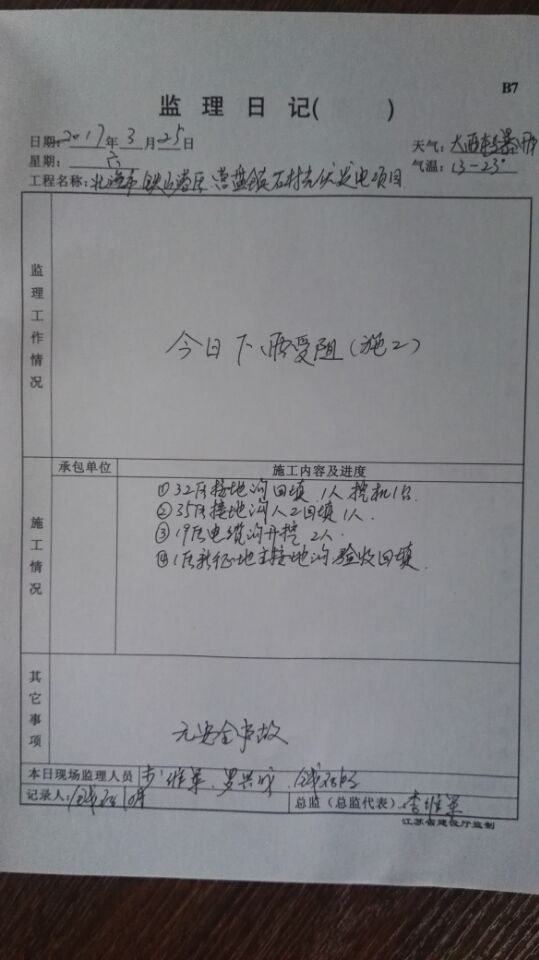 B7
监理日记( )
日期:2017年3月25日
天气:大雨转
星期:六
气温:13-23°
工程名称:北海市铁山港区营盘镇石村光伏发电项目
监理工作情况
今日下雨受阻(施工)
承包单位
施工内容及进度
施工情况
①32区接地沟回填 1人 挖机1台
②35区接地沟人工回填1人.
③19区电缆沟开挖 2人
④1区新征地主接地沟验收回填.
其它事项
无安全事故
本日现场监理人员 李维军. 罗兴
记录人:
总监(总监代表):李维军
江苏省建设厅监制